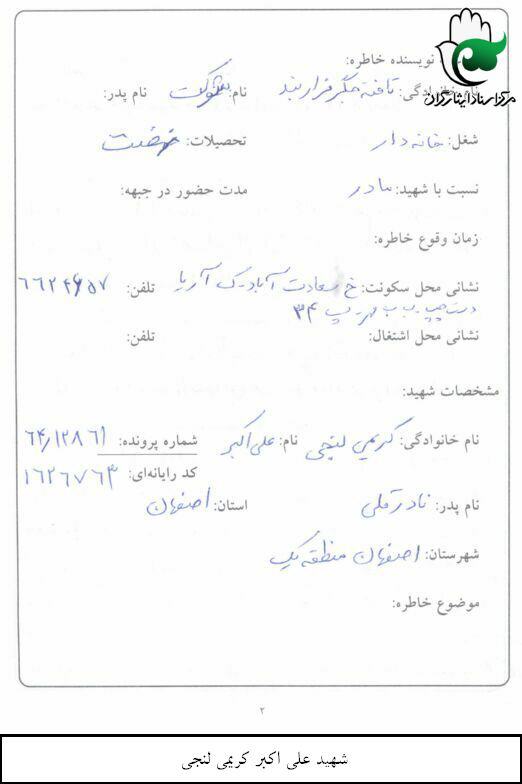 نویسنده خاطره:
مرکز اسناد ایثارگران
نام خانوادگی: تافته جگر قرار بند نام: شوکت نام پدر:
شغل: خانه دار تحصیلات: نهضت
نسبت با شهید: مادر مدت حضور در جبهه:
زمان وقوع خاطره:
نشانی محل سکونت: خ سعادت آباد ک آریا تلفن: ۶۶۲۴۶۵۷
دست چپ پ ۳۴
نشانی محل اشتغال: تلفن:
مشخصات شهید:
نام خانوادگی: کریمی لنجی نام: علی اکبر شماره پرونده: ۶۴/۱۲۸۶۱
کد رایانه‌ای: ۱۶۲۶۷۶۳
نام پدر: نادرقلی استان: اصفهان
شهرستان: اصفهان منطقه یک
موضوع خاطره:
۲
شهید علی اکبر کریمی لنجی